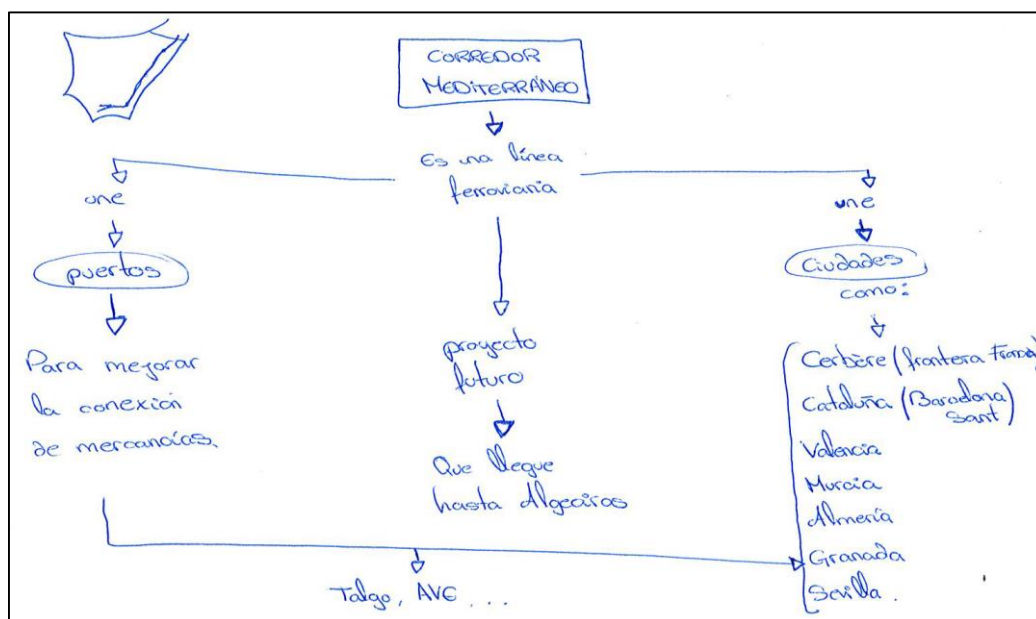 CORREDOR
MEDITERRÁNEO
Es una línea
ferroviaria
une
puertos
Para mejorar
la conexión
de mercancías.
proyecto
futuro
Que llegue
hasta Algeciras
une
Ciudades
como:
Cerbère (frontera
Cataluña (Barcelona
Sant)
Valencia
Murcia
Almería
Granada
Sevilla.
Talgo, AVE ...